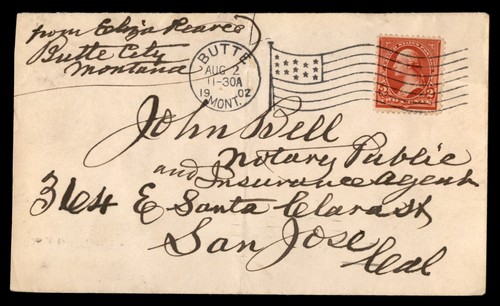 from Eliza Pearce
Butte City
Montana
BUTTE
AUG 2
11-30A
19 02
MONT.
John Bell
Notary Public
and Insurance Agent
314 E Santa Clara St
San Jose
Cal